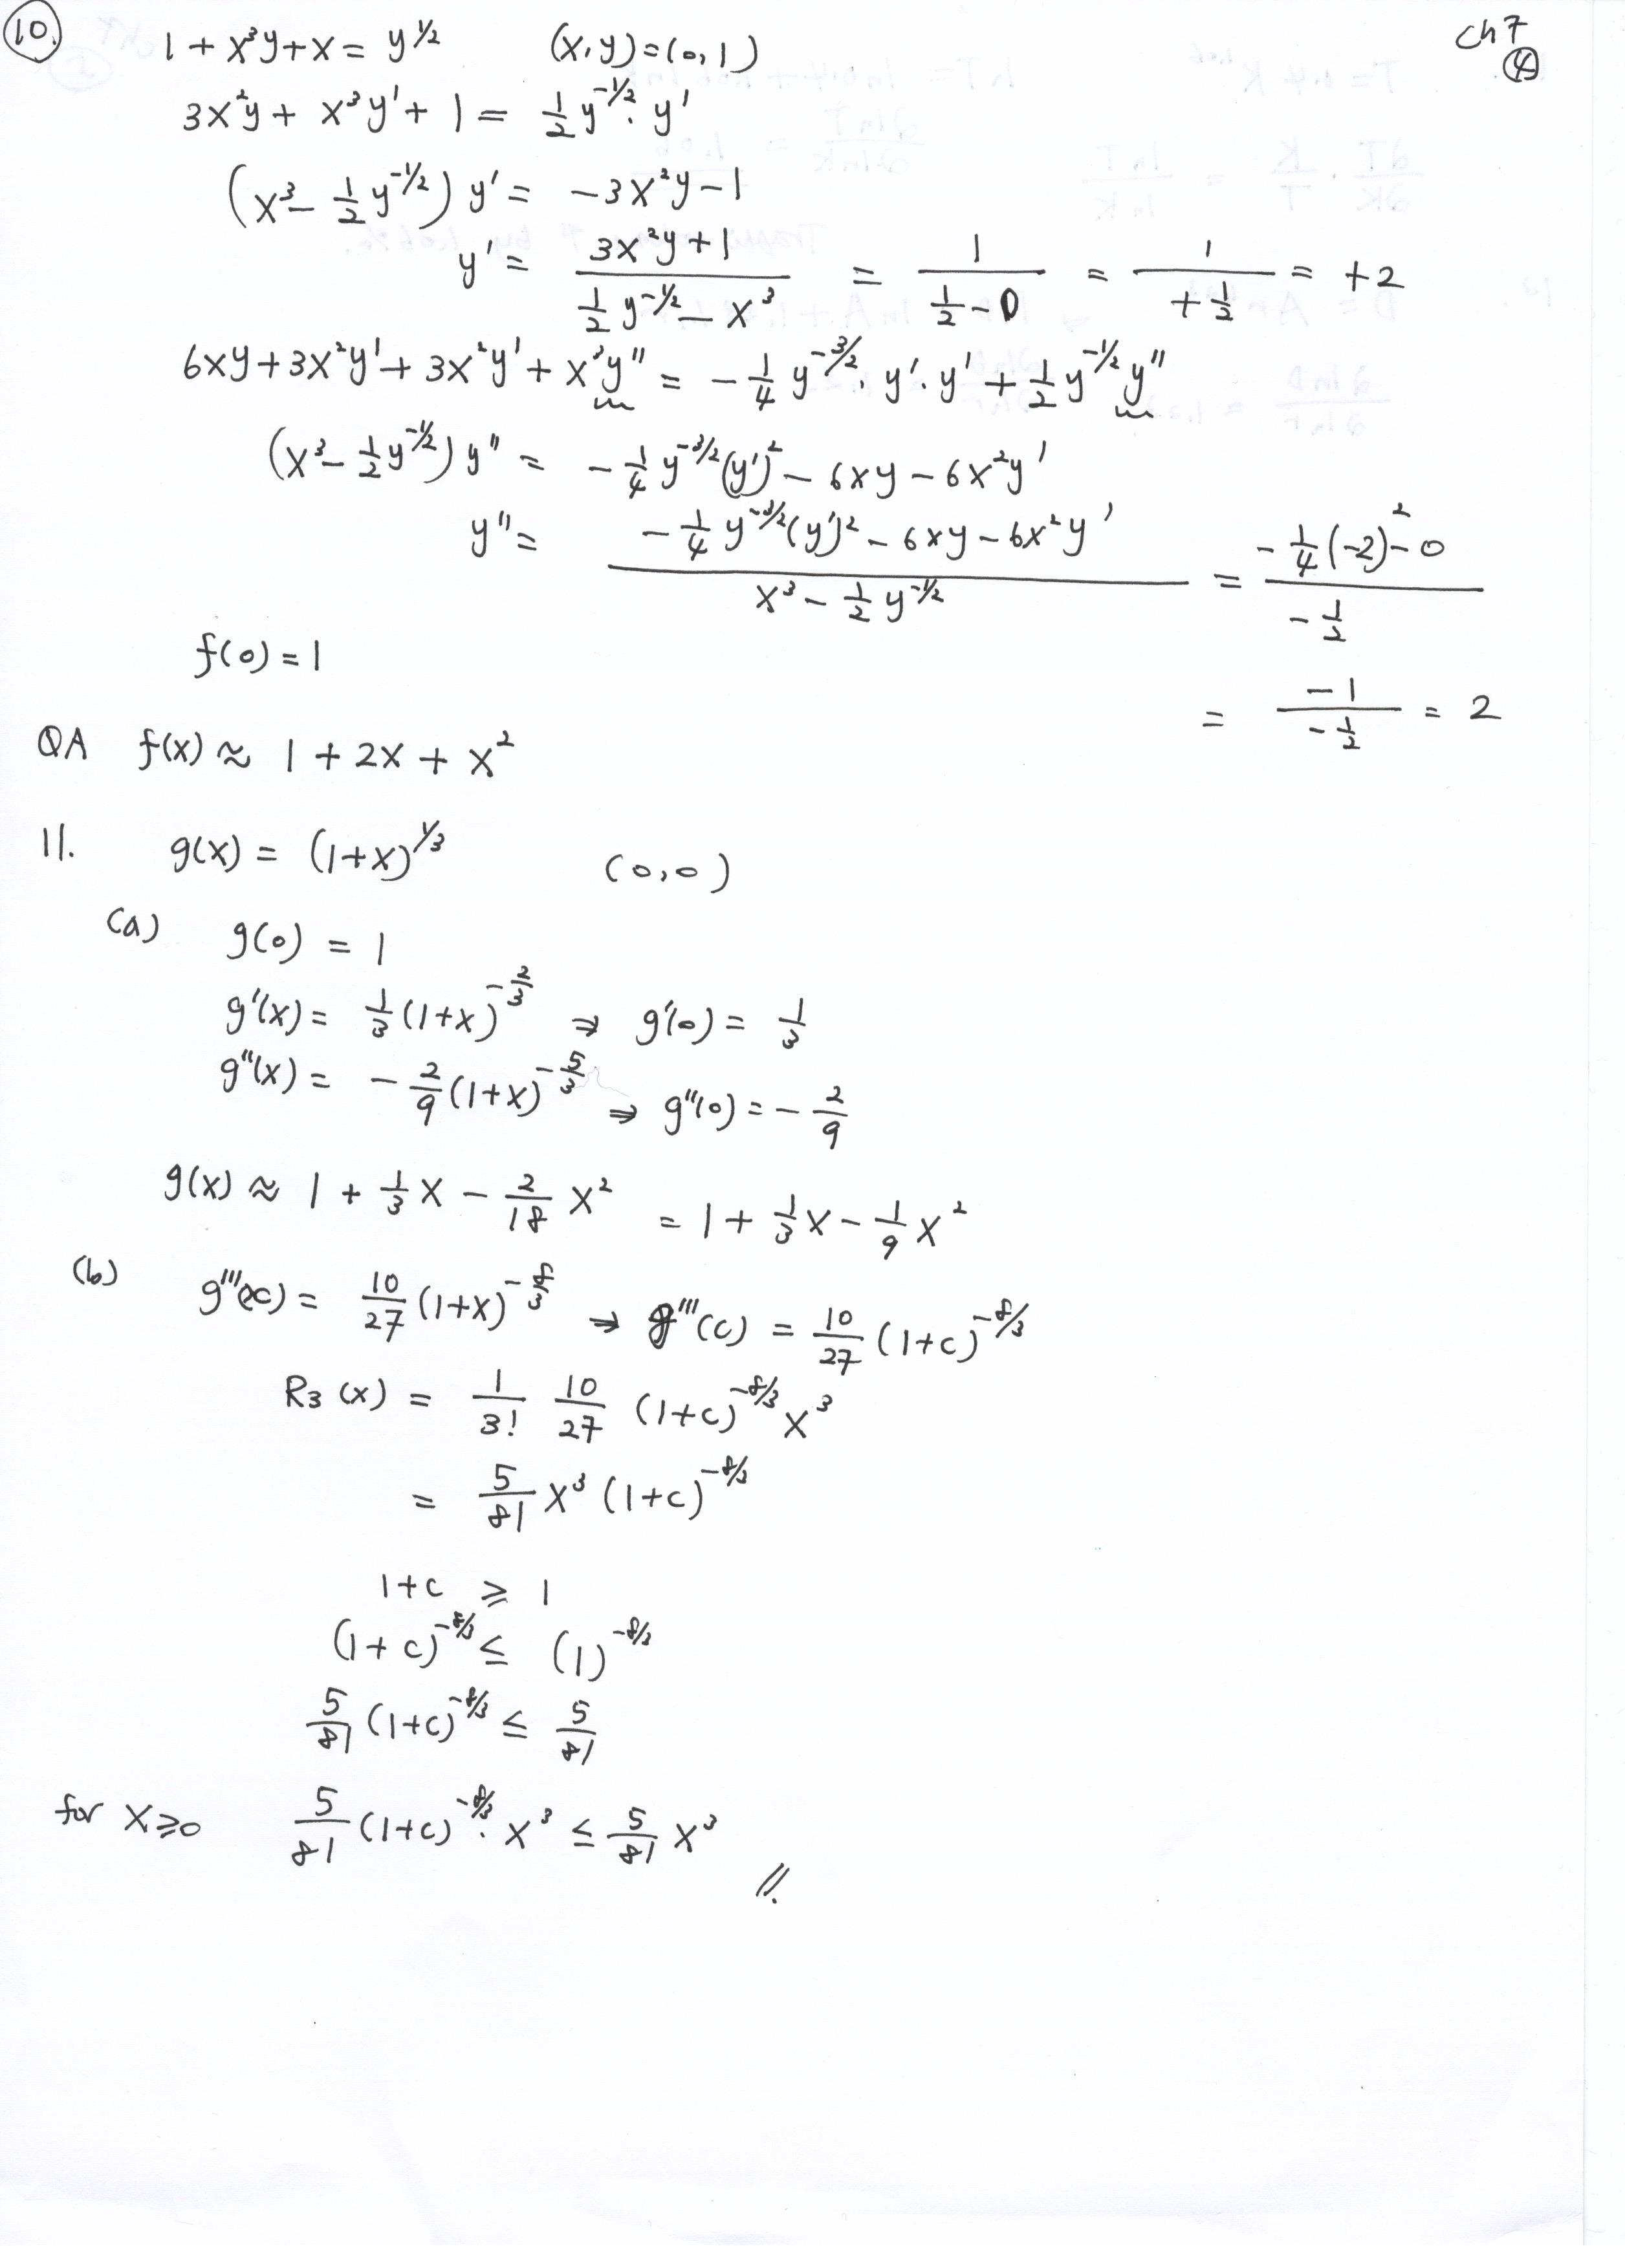 10. 1 + x³y + x = y^{1/2} (x,y) = (0,1) ch7 ④
3x²y + x³y' + 1 = ½ y^{-1/2} · y'
(x³ - ½ y^{-1/2}) y' = -3x²y - 1
y' = (3x²y + 1)/(½ y^{-1/2} - x³) = 1/(½ - 0) = 1/(+½) = +2
6xy + 3x²y' + 3x²y' + x³y'' = -¼ y^{-3/2} · y' · y' + ½ y^{-1/2} y''
(x³ - ½ y^{-1/2}) y'' = -¼ y^{-3/2} (y')² - 6xy - 6x²y'
y'' = (-¼ y^{-3/2} (y')² - 6xy - 6x²y')/(x³ - ½ y^{-1/2}) = (-¼ (-2)² - 0)/(-½)
f(0) = 1
= -1/(-½) = 2
QA f(x) ≈ 1 + 2x + x²
11. g(x) = (1+x)^{1/3} (0,0)
(a) g(0) = 1
g'(x) = ⅓ (1+x)^{-2/3} ⇒ g'(0) = ⅓
g''(x) = -2/9 (1+x)^{-5/3} ⇒ g''(0) = -2/9
g(x) ≈ 1 + ⅓ x - 2/18 x² = 1 + ⅓ x - 1/9 x²
(b) g'''(x) = 10/27 (1+x)^{-8/3} ⇒ g'''(c) = 10/27 (1+c)^{-8/3}
R₃(x) = 1/3! 10/27 (1+c)^{-8/3} x³
= 5/81 x³ (1+c)^{-8/3}
1+c ⩾ 1
(1+c)^{-8/3} ≤ (1)^{-8/3}
5/81 (1+c)^{-8/3} ≤ 5/81
for x⩾0 5/81 (1+c)^{-8/3} · x³ ≤ 5/81 x³ //.